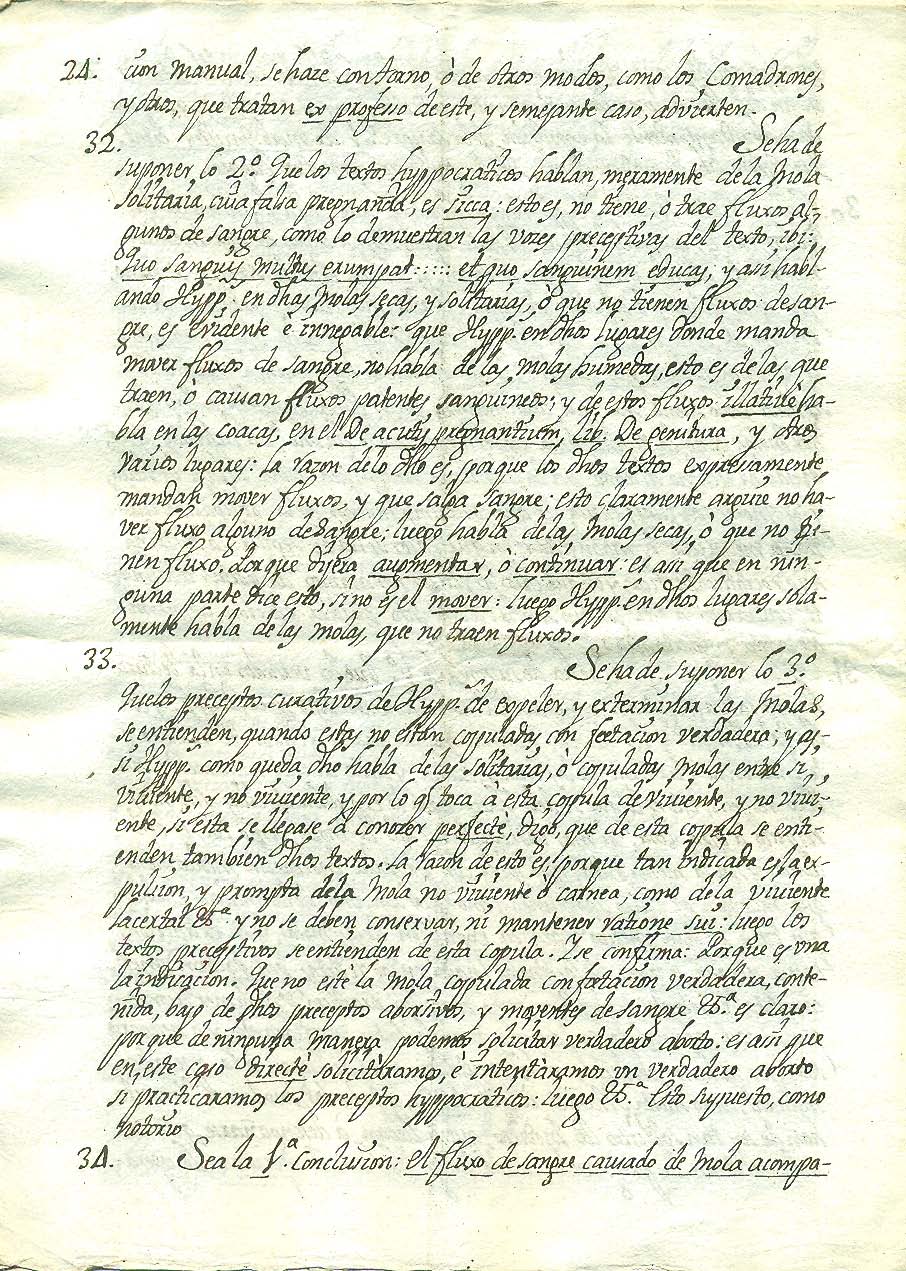 24. cion manual, se haze con torno, ò de otros modos, como los Comadrones,
y otros, que tratan ex professo de este, y semejante caso, advierten.
32. Se ha de
suponer lo 2.º Que los textos hyppocraticos hablan, meramente de la Mola
solitaria, cuia falsa pregnancia, es sicca: esto es, no tiene, ò trae fluxos al-
gunos de sangre, como lo demuestran las vozes preceptivas del texto, ibi:
Quo sanguis multus erumpat::::: et quo sanguinem educas, y asi habl-
ando Hypp.s en dhas Molas secas, y solitarias, ò que no tienen fluxos de san-
gre, es evidente è innegable: que Hypp.s en dhos lugares donde manda
mover fluxos de sangre, no habla de las molas humedas, esto es de las que
traen, ò causan fluxos patentes sanguineos; y de estos fluxos illativè ha-
bla en las coacas, en el De acutis pregnantium, lib. De genitura, y otros
varios lugares: La razon de lo dho es, porque los dhos textos expresamente
mandan mover fluxos, y que salga sangre; esto claramente arguie no ha-
ver fluxo alguno de sangre; luego habla de las Molas secas, ò que no tie-
nen fluxo. Porque dijera augmentar, ò continuar: es asi que en nin-
guna parte dice esto, sino es el mover: luego Hypp.s en dhos lugares sola-
mente habla de las molas, que no traen fluxos.
33. Se ha de suponer lo 3.º
Que los preceptos curativos de Hypp.s de expeler, y exterminar las Molas,
se entienden, quando estas no estan copuladas con foetacion verdadera; y as-
si Hypp.s como queda dho habla de las solitarias, ò copuladas Molas entre si,
viviente, y no viviente, y por lo q toca à esta copula de viviente, y no vivi-
ente, si esta se llegase à conozer perfectè, digo, que de esta copula se enti-
enden tambien dhos textos. La razon de esto es, porque tan indicada es la ex-
pulsion, y prompta dela Mola no viviente ò carnea, como de la viviente
lacertal &.ª y no se deben conservar, ni mantener ratione sui: luego los
textos preceptivos se entienden de esta copula. Y se confirma: Porque es una
la indicacion. Que no estè la Mola, copulada con foetacion verdadera, conte-
nida, bajo de dhos preceptos aborsivos, y moventes de sangre &.ª es claro:
porque de ninguna manera podemos solicitar verdadero aborto: es asi que
en este caso directè solicitàramos, è intentàramos un verdadero aborto
si practicaramos los preceptos hyppocraticos: luego &.ª Esto supuesto, como
notorio
34. Sea la 1.ª Conclusion: el fluxo de sangre causado de Mola acompa-